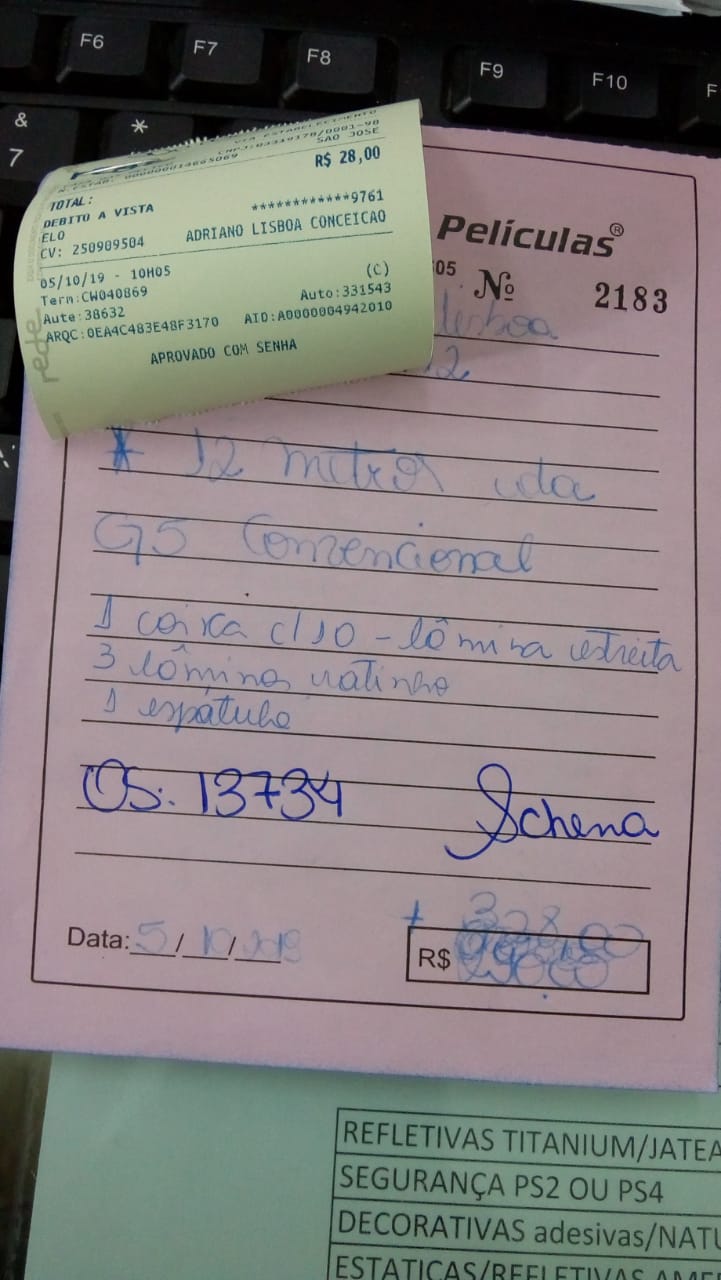 F6
F7
F8
F9
F10
F
&
7
*
VIA ESTABELECIMENTO
SAO JOSE
R$ 28,00
TOTAL:
DEBITO A VISTA
ELO ************9761
CV: 250909504 ADRIANO LISBOA CONCEICAO
05/10/19 - 10H05 (C)
Term:CW040869 Auto:331543
Aute:38632
ARQC:0EA4C483E48F3170 AID:A0000004942010
APROVADO COM SENHA
rede
Películas®
05 Nº 2183
lisboa
2
* 12 metros
G5 Convencional
1 caixa c/10 - lâmina estreita
3 lâminas ratinho
1 espátula
OS: 13734 Schena
Data: 5/10/2019
+ 328,00
R$
REFLETIVAS TITANIUM/JATEA
SEGURANÇA PS2 OU PS4
DECORATIVAS adesivas/NATU
ESTATICAS/REFLETIVAS AME